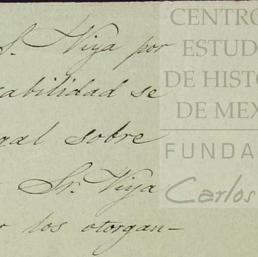 S. Viya por
abilidad se
gal sobre
Sr. Viya
r los otorgan-
CENTRO
ESTUD
DE HISTO
DE MEX
FUNDA
Carlos